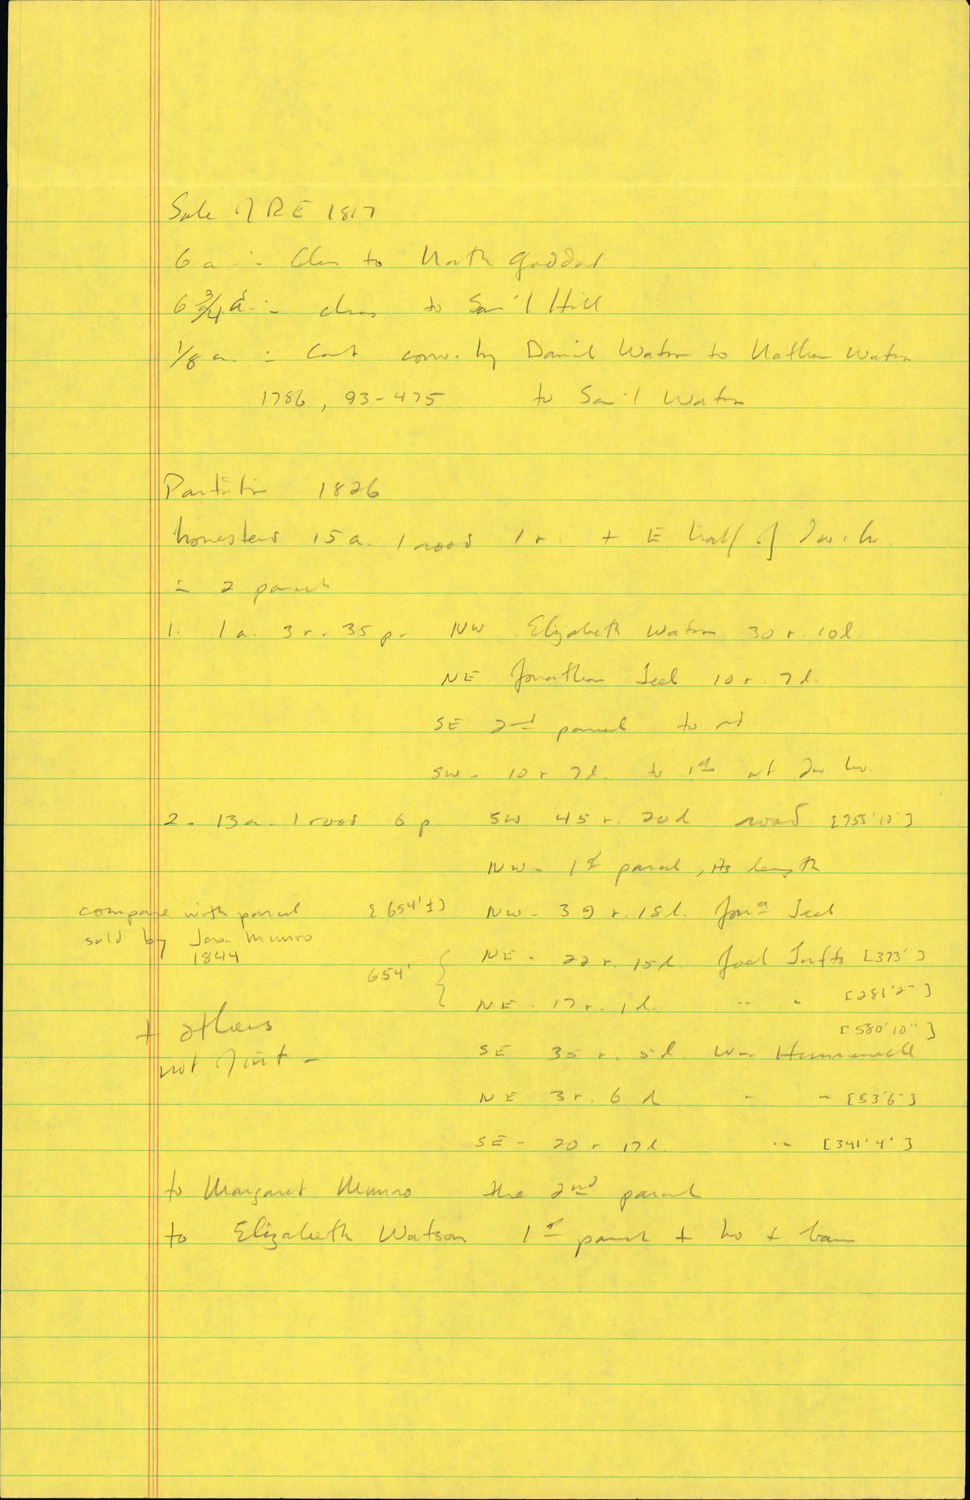 Sale of RE 1817
6 a in to Goddard
6 3/4 a in to Sam'l Hill
1/8 a in conv. by Daniel Watson to Nathan Watson
1786, 93-475 to Sam'l Watson
Partition 1826
homestead 15 a. 1 rood 1 r. + E half of dw. ho.
in 2 parcels
1. 1 a. 3 r. 35 p. NW Elizabeth Watson 30 r. 10 l.
NE Jonathan Teel 10 r. 7 l.
SE 2nd parcel to rd
SW - 10 r 7 l. to 1st at dw ho.
2. 13 a. 1 rood 6 p. SW 45 r. 20 l road [755'10"]
NW - 1st parcel, its length
compare with parcel [654'±] NW - 39 r. 15 l. Jona Teel
sold by Munro
1844
654' { NE - 22 r. 15 l. Joel Tufts [373']
NE - 17 r. 1 l. " " [281'2"]
+ others
[580'10"]
SE 35 r. 5 l. Wm Hunnewell
not joint -
NE 3 r. 6 l " " [53'6"]
SE - 20 r 17 l. " [341'4"]
to Margaret Munro the 2nd parcel
to Elizabeth Watson 1st parcel + ho + barn